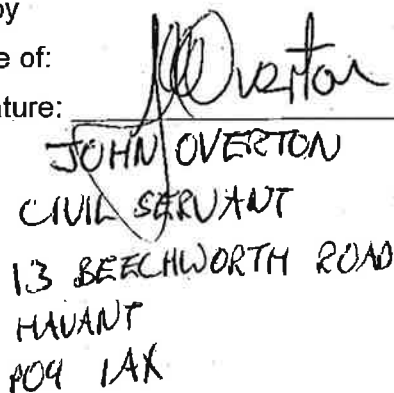 by
e of:
ature: JOverton
JOHN OVERTON
CIVIL SERVANT
13 BEECHWORTH ROAD
HAVANT
PO9 1AX